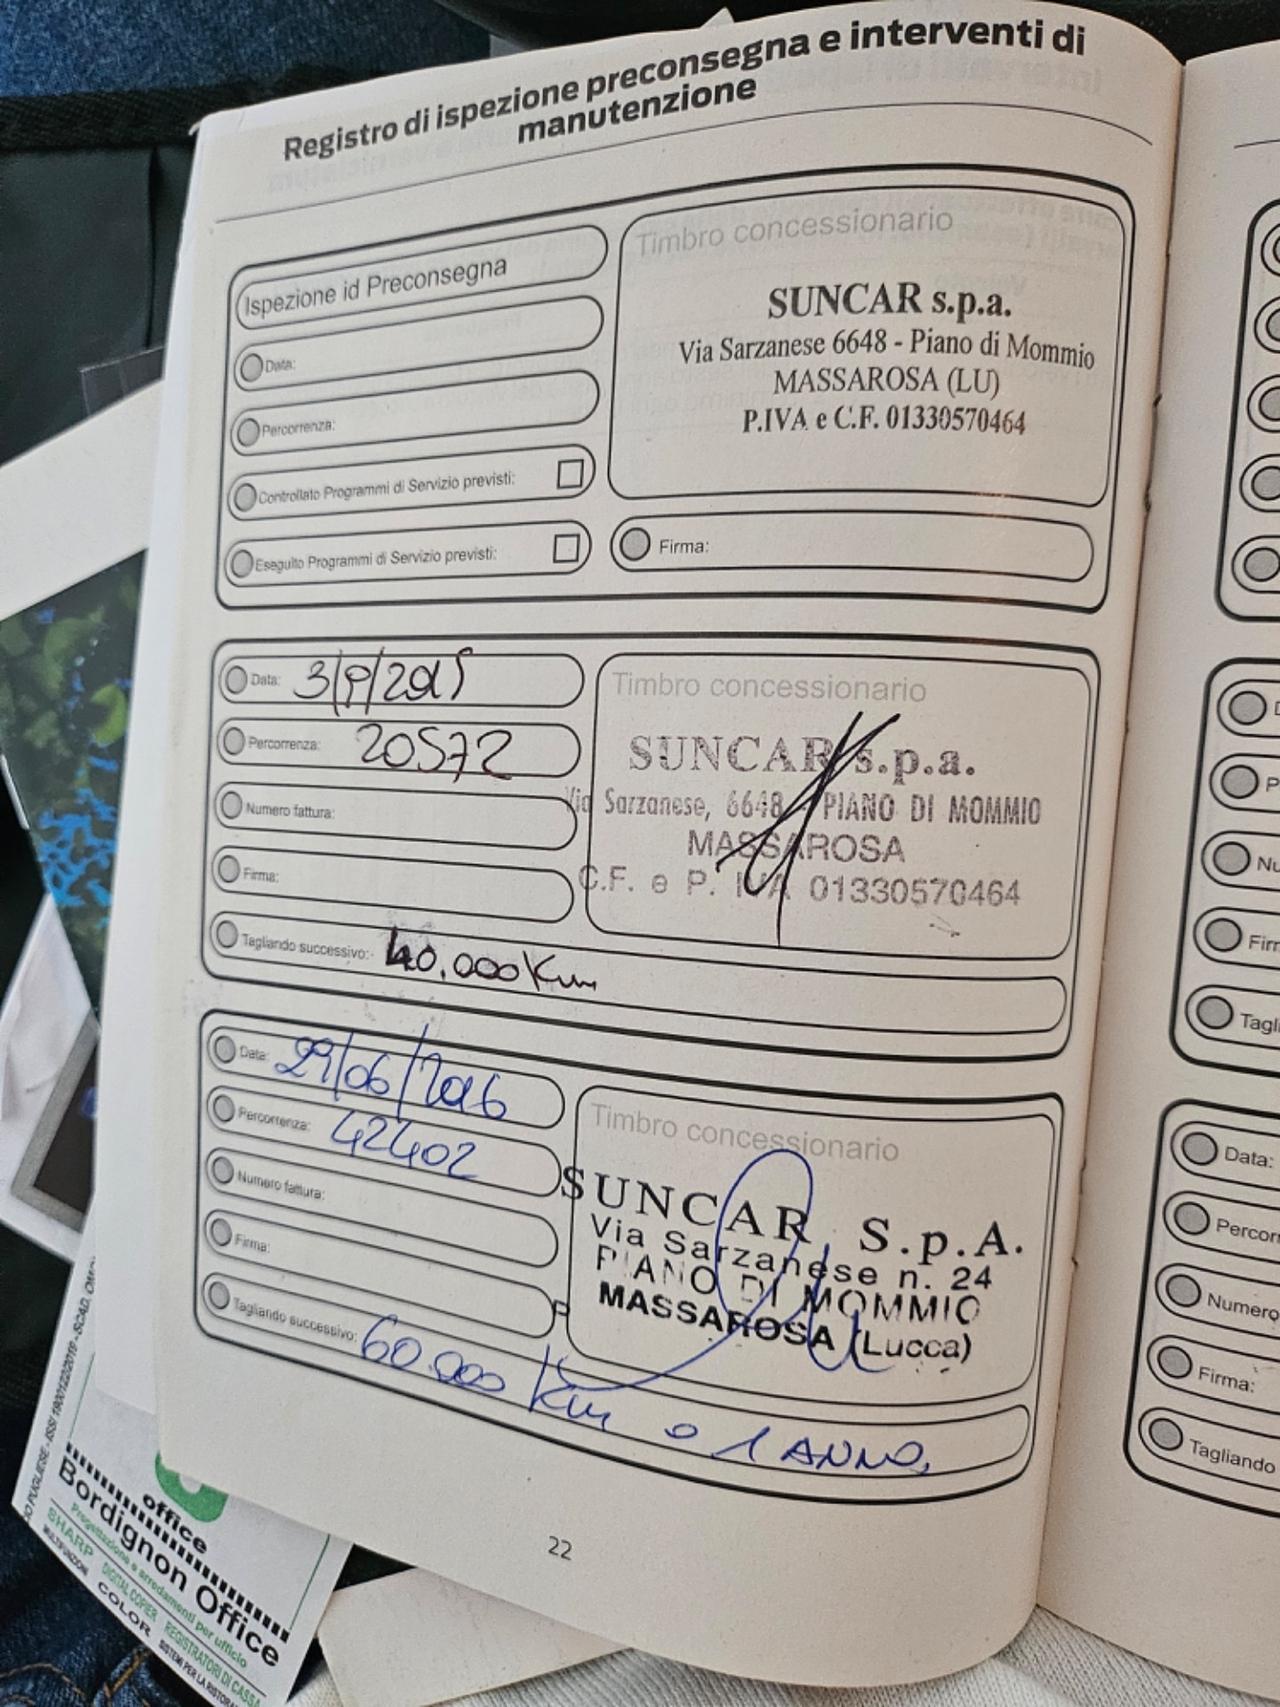 Registro di ispezione preconsegna e interventi di
manutenzione
Ispezione id Preconsegna
Data:
Percorrenza:
Controllato Programmi di Servizio previsti:
Eseguito Programmi di Servizio previsti:
Timbro concessionario
SUNCAR s.p.a.
Via Sarzanese 6648 - Piano di Mommio
MASSAROSA (LU)
P.IVA e C.F. 01330570464
Firma:
Data: 3/9/2015
Percorrenza: 20572
Numero fattura:
Firma:
Tagliando successivo: 40.000 Km
Timbro concessionario
SUNCAR s.p.a.
Via Sarzanese, 6648 - PIANO DI MOMMIO
MASSAROSA
C.F. e P. IVA 01330570464
Data: 29/06/2016
Percorrenza: 42402
Numero fattura:
Firma:
Tagliando successivo: 60.000 Km o 1 ANNO,
Timbro concessionario
SUNCAR S.p.A.
Via Sarzanese n. 24
PIANO DI MOMMIO
MASSAROSA (Lucca)
P
22
Data:
Percor
Numero
Firma:
Tagliando
P
Nu
Firm
Tagli
office
Bordignon Office
Progettazione e arredamenti per ufficio
SHARP DIGITAL COPIER REGISTRATORI DI CASSA
MULTIFUNZIONE COLOR SISTEMI PER LA RISTORA